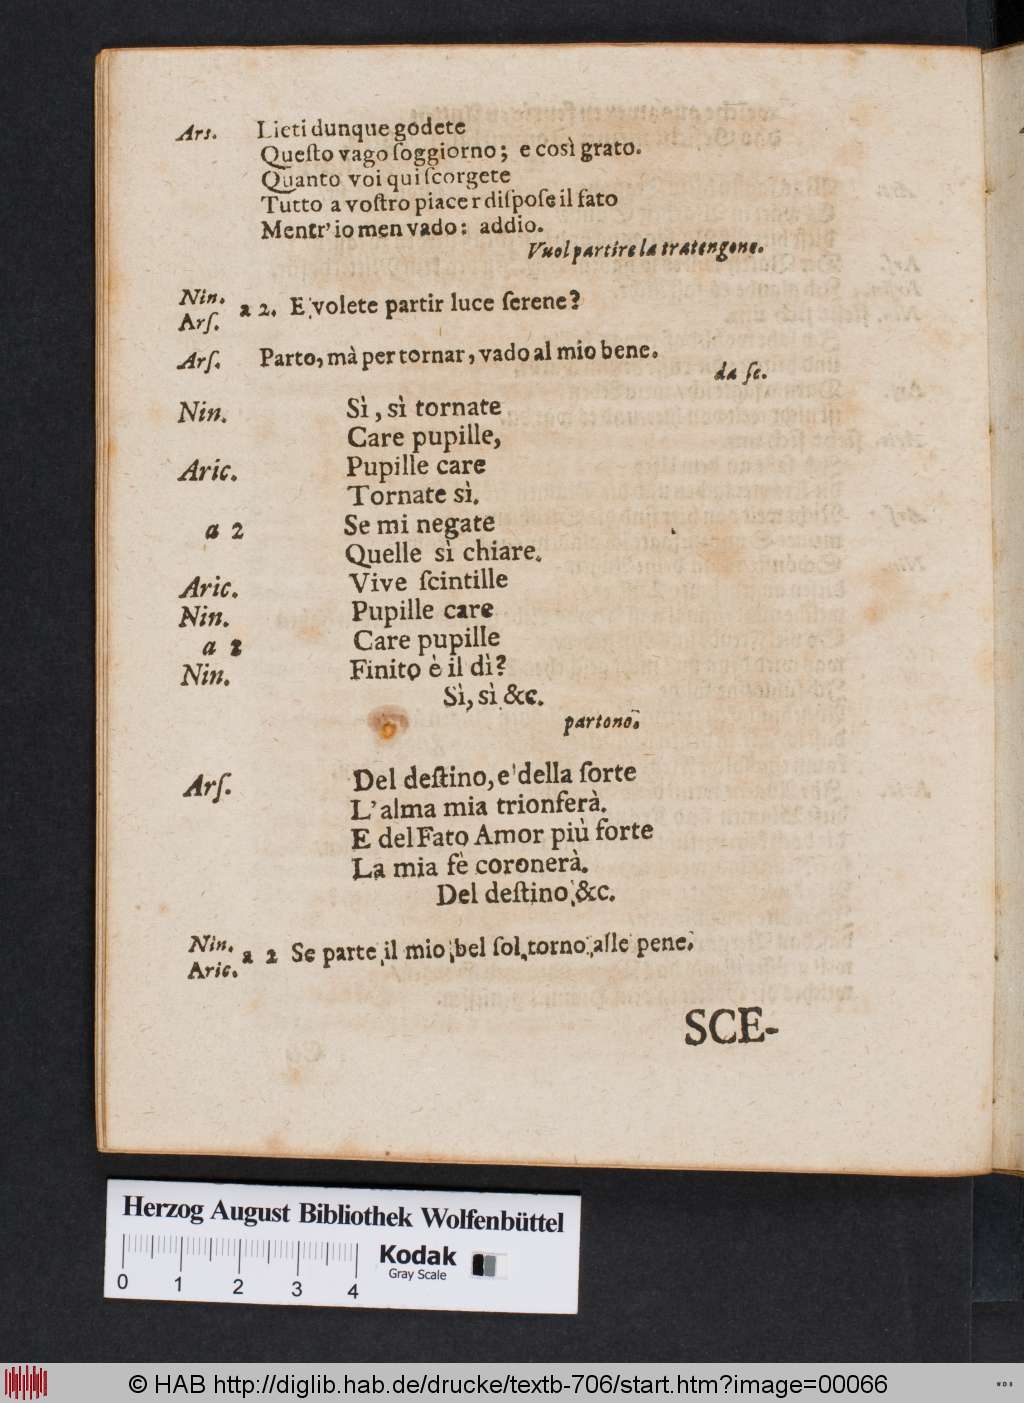 Ars. Lieti dunque godete
Queſto vago ſoggiorno; e così grato.
Quanto voi qui ſcorgete
Tutto a voſtro piacer diſpoſe il fato
Mentr' io men vado: addio.
Vuol partire la tratengone.
Nin.
Arſ. a 2. E volete partir luce ſerene?
Arſ. Parto, mà per tornar, vado al mio bene.
da ſe.
Nin. Sì, sì tornate
Care pupille,
Aric. Pupille care
Tornate sì.
a 2 Se mi negate
Quelle sì chiare.
Aric. Vive ſcintille
Nin. Pupille care
a 2 Care pupille
Nin. Finito è il dì?
Sì, sì &c.
partono.
Arſ. Del deſtino, e della ſorte
L'alma mia trionferà.
E del Fato Amor più forte
La mia fè coronerà.
Del deſtino &c.
Nin.
Aric. a 2 Se parte il mio bel ſol, torno alle pene.
SCE-
Herzog August Bibliothek Wolfenbüttel
0 1 2 3 4
Kodak
Gray Scale
© HAB http://diglib.hab.de/drucke/textb-706/start.htm?image=00066